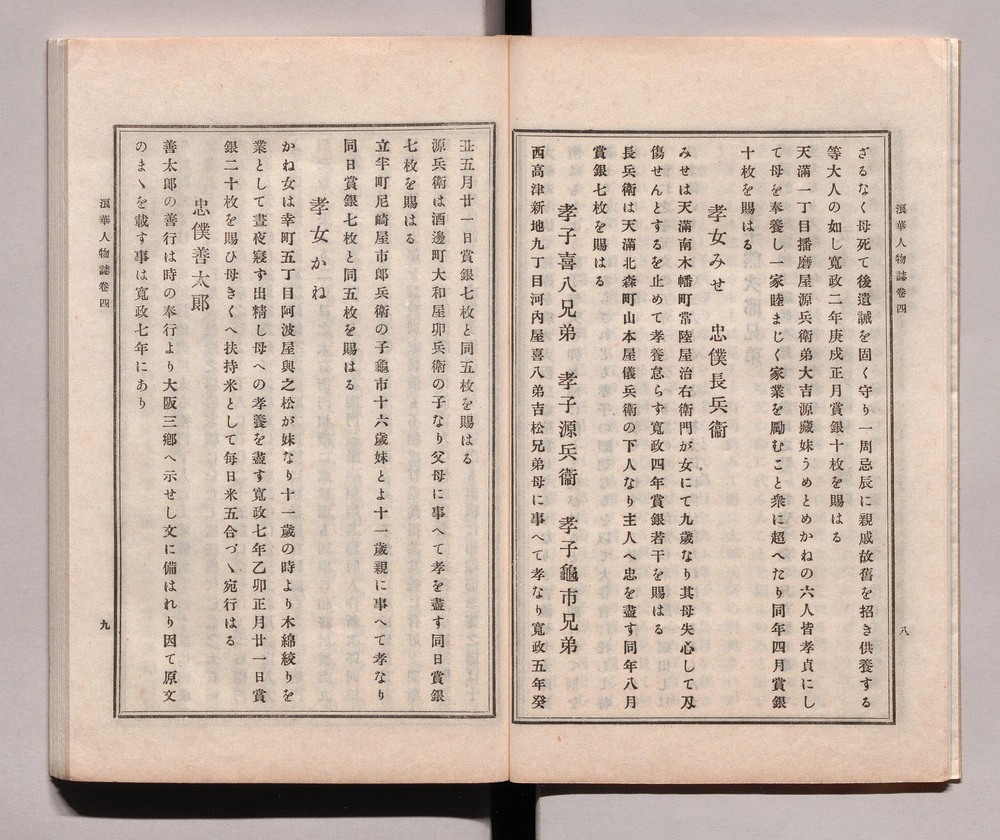 浪華人物誌卷四
八
ざるなく母死て後遺誡を固く守り一周忌辰に親戚故舊を招き供養する
等大人の如し寬政二年庚戌正月賞銀十枚を賜はる
天滿一丁目播磨屋源兵衞弟大吉源藏妹うめとめかねの六人皆孝貞にし
て母を奉養し一家睦まじく家業を勵むこと衆に超へたり同年四月賞銀
十枚を賜はる
孝女みせ 忠僕長兵衞
みせは天滿南木幡町常陸屋治右衞門が女にて九歲なり其母失心して刄
傷せんとするを止めて孝養怠らす寬政四年賞銀若干を賜はる
長兵衞は天滿北森町山本屋儀兵衞の下人なり主人へ忠を盡す同年八月
賞銀七枚を賜はる
孝子喜八兄弟 孝子源兵衞 孝子龜市兄弟
西高津新地九丁目河內屋喜八弟吉松兄弟母に事へて孝なり寬政五年癸
丑五月廿一日賞銀七枚と同五枚を賜はる
源兵衞は酒邊町大和屋卯兵衞の子なり父母に事へて孝を盡す同日賞銀
七枚を賜はる
立半町尼崎屋市郞兵衞の子龜市十六歲妹とよ十一歲親に事へて孝なり
同日賞銀七枚と同五枚を賜はる
孝女かね
かね女は幸町五丁目阿波屋與之松が妹なり十一歲の時より木綿絞りを
業として晝夜寢ず出精し母への孝養を盡す寬政七年乙卯正月廿一日賞
銀二十枚を賜ひ母きくへ扶持米として每日米五合づヽ宛行はる
忠僕善太郞
善太郞の善行は時の奉行より大阪三鄕へ示せし文に備はれり因て原文
のまヽを載す事は寬政七年にあり
浪華人物誌卷四
九